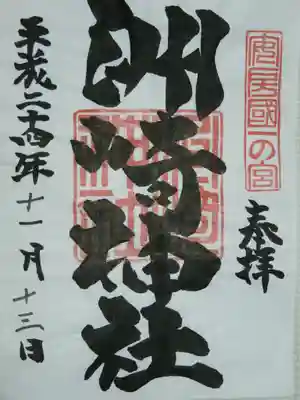 安房國一の宮
奉拝
洲崎神社
平成二十四年十一月十三日